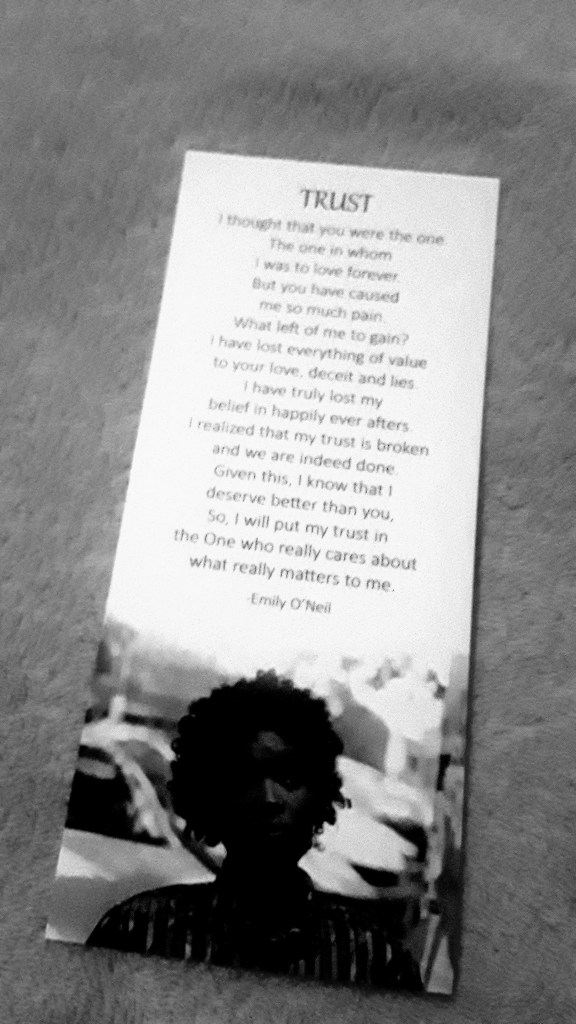 TRUST
I thought that you were the one
The one in whom
I was to love forever.
But you have caused
me so much pain.
What left of me to gain?
I have lost everything of value
to your love, deceit and lies.
I have truly lost my
belief in happily ever afters.
I realized that my trust is broken
and we are indeed done.
Given this, I know that I
deserve better than you,
So, I will put my trust in
the One who really cares about
what really matters to me.
-Emily O'Neil